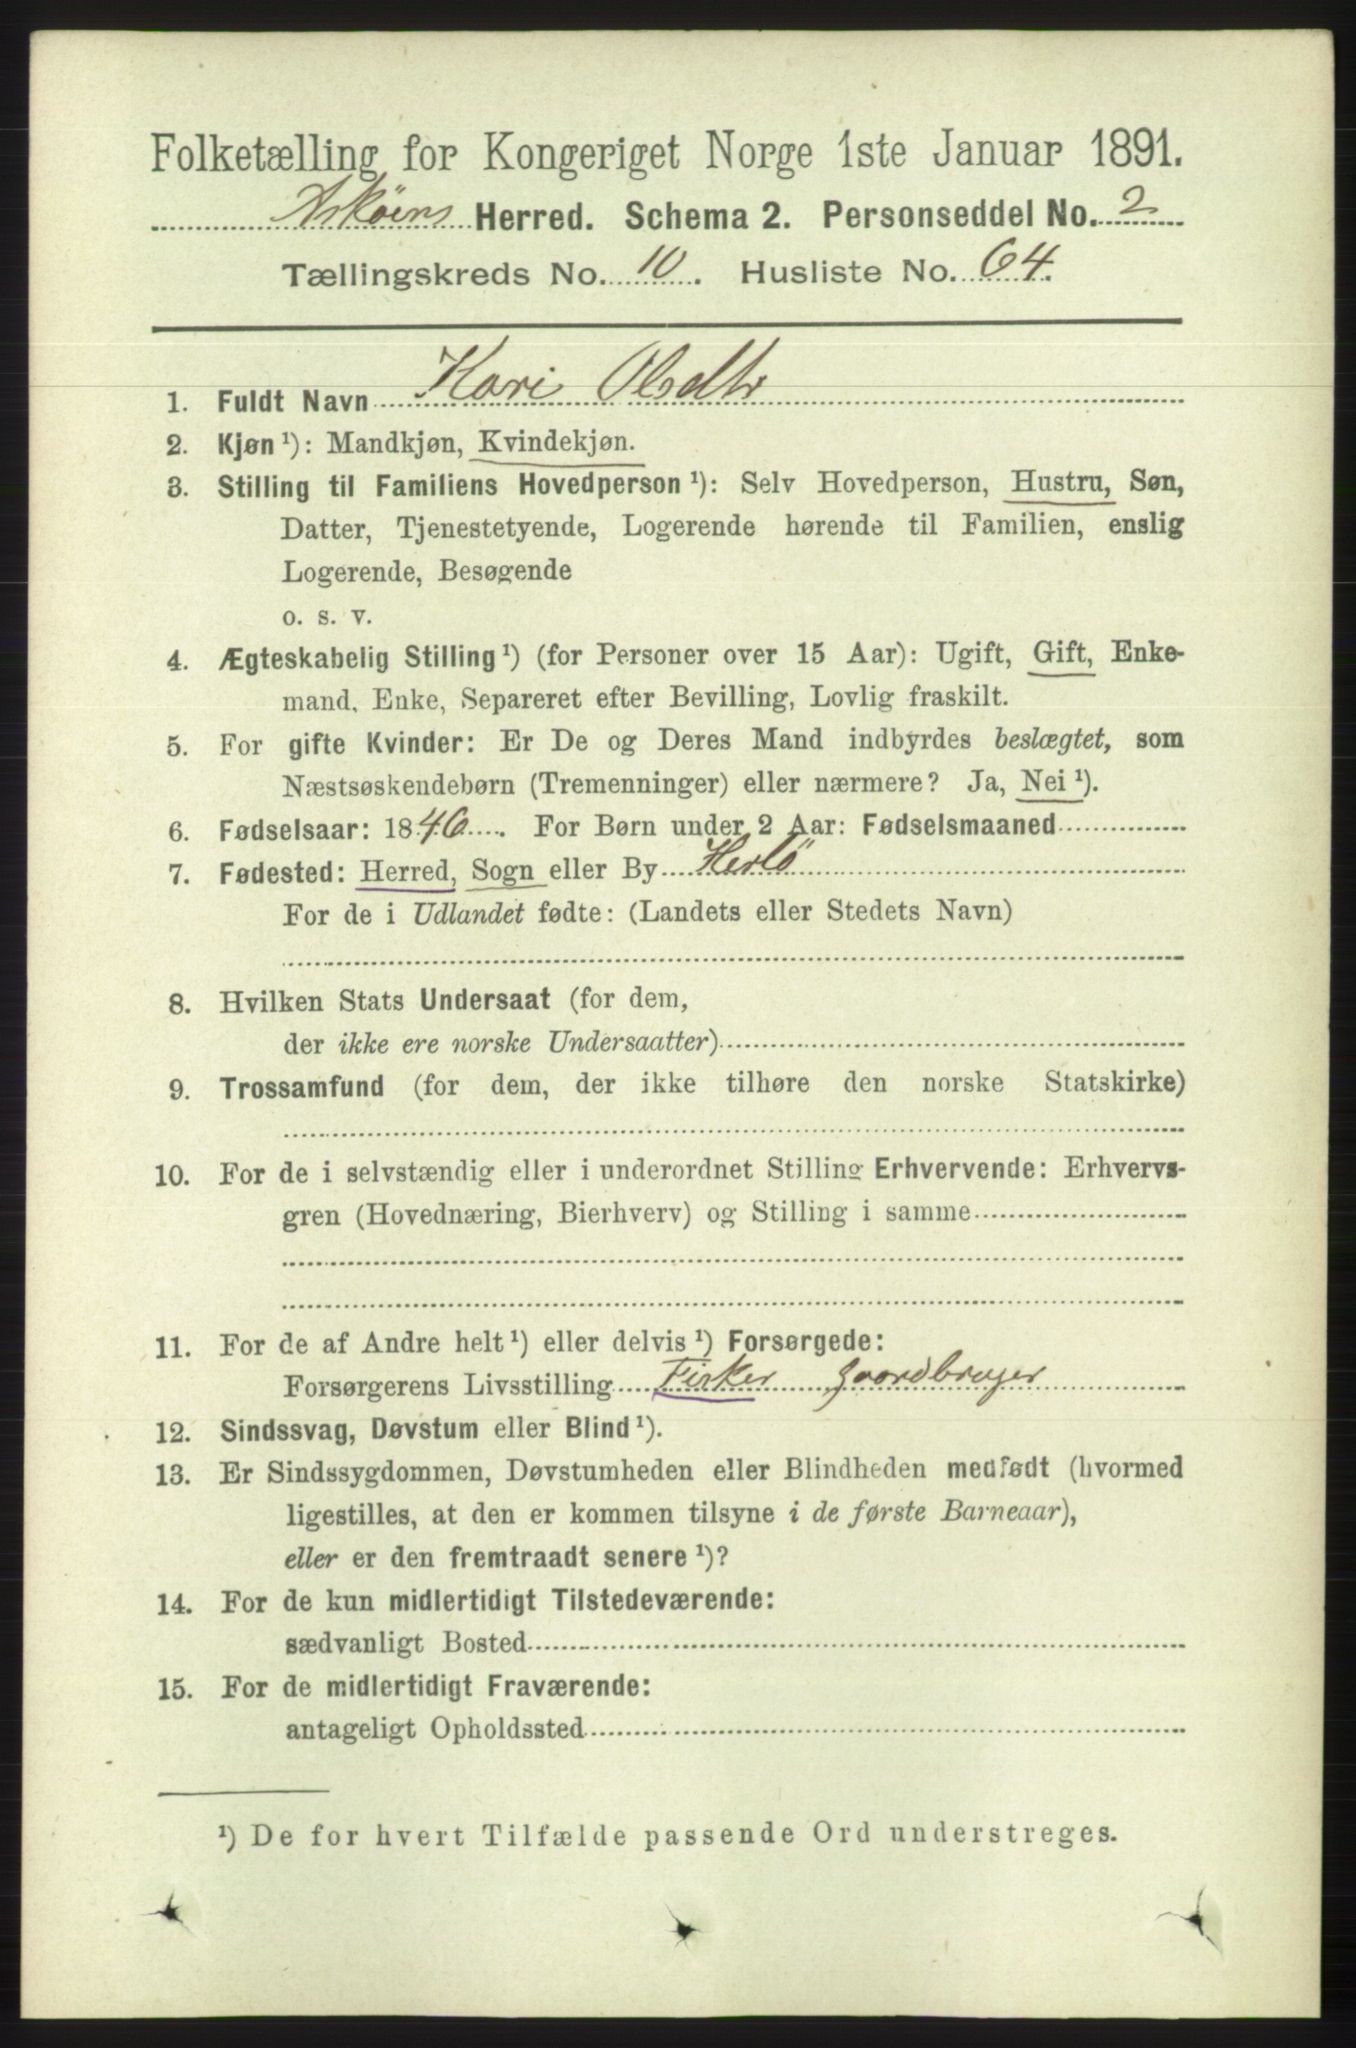 Folketælling for Kongeriget Norge 1ste Januar 1891.
Askøens Herred. Schema 2. Personseddel No. 2
Tællingskreds No. 10. Husliste No. 64.
1. Fuldt Navn Kari Olsdtr
2. Kjøn¹): Mandkjøn, Kvindekjøn.
3. Stilling til Familiens Hovedperson¹): Selv Hovedperson, Hustru, Søn,
Datter, Tjenestetyende, Logerende hørende til Familien, enslig
Logerende, Besøgende
o. s. v.
4. Ægteskabelig Stilling¹) (for Personer over 15 Aar): Ugift, Gift, Enke-
mand, Enke, Separeret efter Bevilling, Lovlig fraskilt.
5. For gifte Kvinder: Er De og Deres Mand indbyrdes beslægtet, som
Næstsøskendebørn (Tremenninger) eller nærmere? Ja, Nei¹).
6. Fødselsaar: 1846. For Børn under 2 Aar: Fødselsmaaned
7. Fødested: Herred, Sogn eller By Herlö
For de i Udlandet fødte: (Landets eller Stedets Navn)
8. Hvilken Stats Undersaat (for dem,
der ikke ere norske Undersaatter)
9. Trossamfund (for dem, der ikke tilhøre den norske Statskirke)
10. For de i selvstændig eller i underordnet Stilling Erhvervende: Erhvervs-
gren (Hovednæring, Bierhverv) og Stilling i samme
11. For de af Andre helt¹) eller delvis¹) Forsørgede:
Forsørgerens Livsstilling Fisker gaardbruger
12. Sindssvag, Døvstum eller Blind¹).
13. Er Sindssygdommen, Døvstumheden eller Blindheden medfødt (hvormed
ligestilles, at den er kommen tilsyne i de første Barneaar),
eller er den fremtraadt senere¹)?
14. For de kun midlertidigt Tilstedeværende:
sædvanligt Bosted
15. For de midlertidigt Fraværende:
antageligt Opholdssted
¹) De for hvert Tilfælde passende Ord understreges.